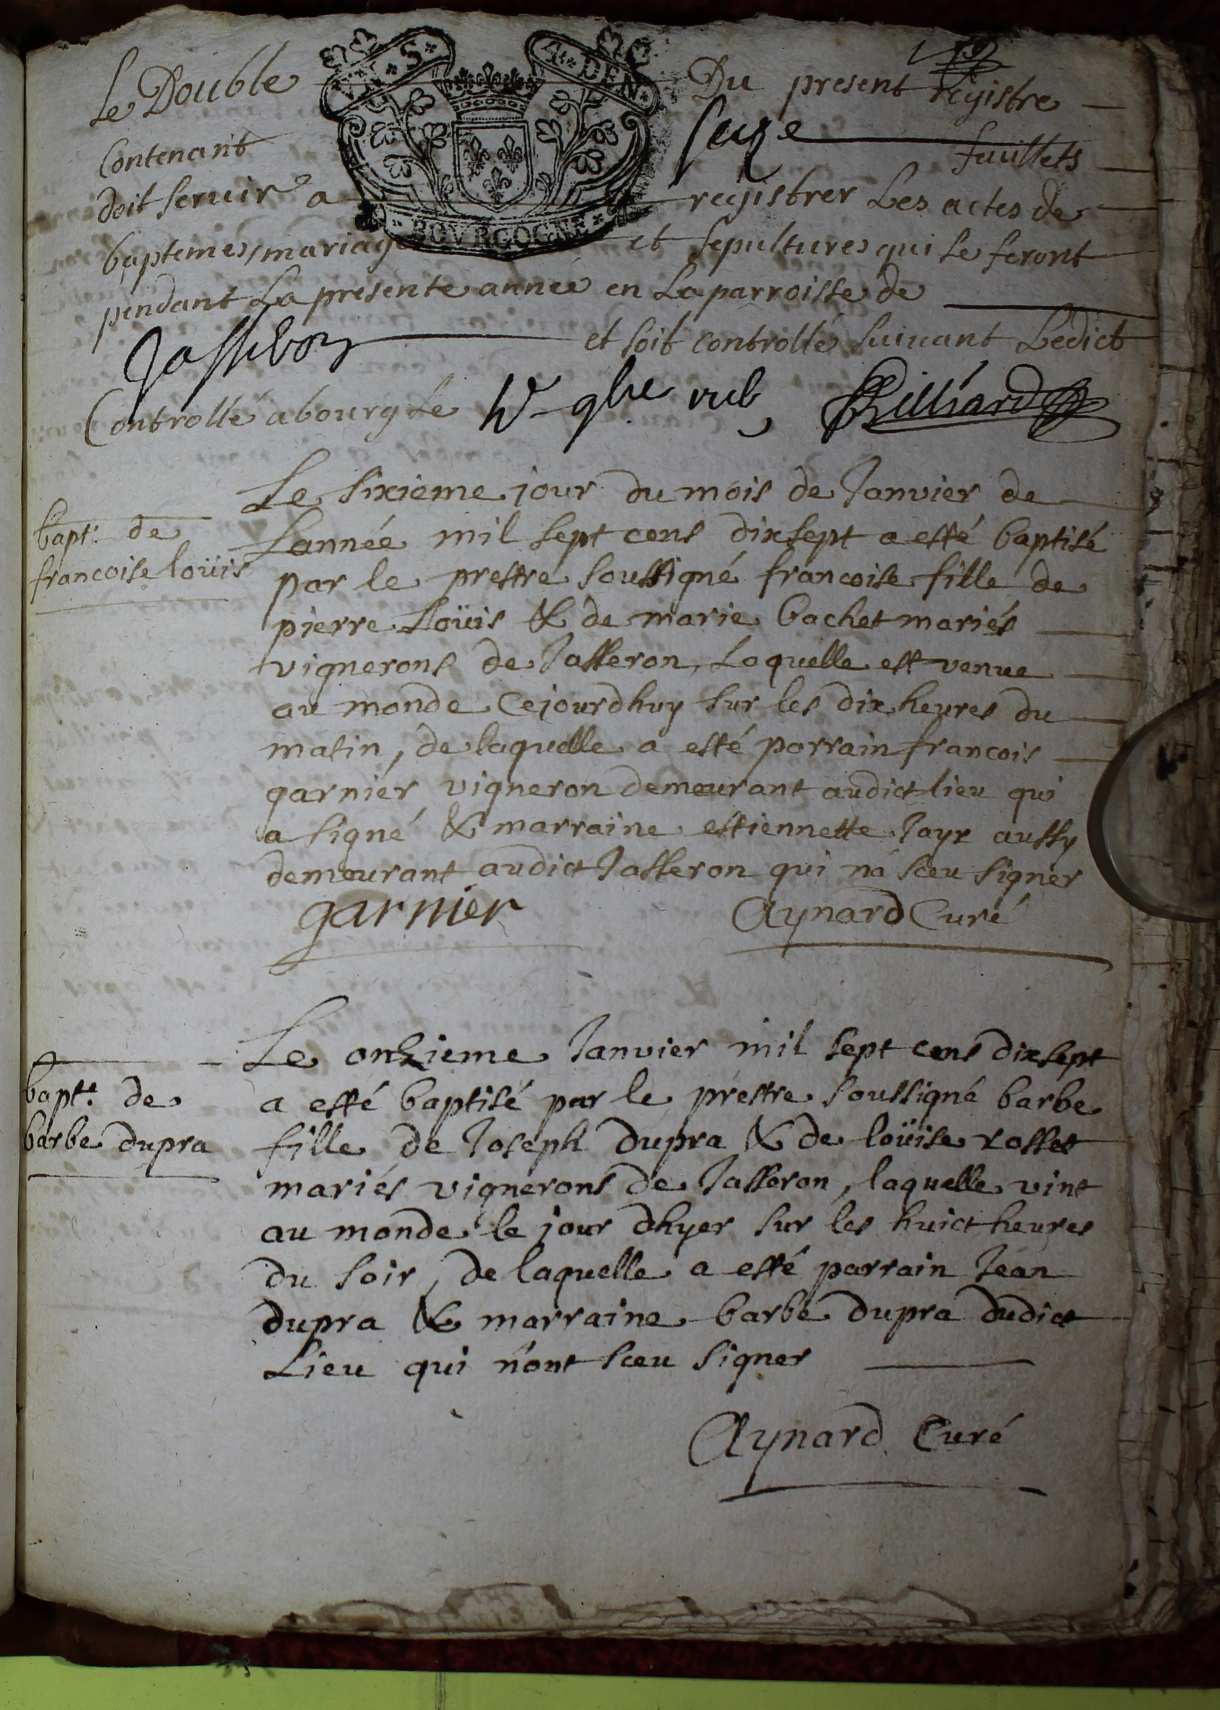 Le Double Du present registre
Contenant seize feuillets
doit servir a registrer Les actes de
baptemes, mariages et sepultures qui se feront
pendant La presente année en La parroisse de
Jasseron et soit controllé suivant Ledict
Controllé a bourg Le 9bre Billiard
S 4 DEN
BOVRGOGNE
bapt. de
francoise loüis
Le sixieme jour du mois de Janvier de
Lannée mil sept cens dixsept a esté baptisé
par le prestre soussigné francoise fille de
pierre Loüis & de marie bachet mariés
vignerons de Jasseron, Laquelle est venue
au monde cejourdhuy sur les dix heures du
matin, de laquelle a esté parrain francois
garnier vigneron demeurant audict lieu qui
a signé & marraine estiennette Jayr aussy
demeurant audict Jasseron qui na sceu signer
garnier Aynard Curé
bapt.e de
barbe dupra
Le onzieme Janvier mil sept cens dixsept
a esté baptisé par le prestre soussigné barbe
fille de Joseph dupra & de loüise rosset
mariés vignerons de Jasseron, laquelle vint
au monde le jour dhyer sur les huict heures
du soir, de laquelle a esté parrain Jean
dupra & marraine barbe dupra dudict
Lieu qui n'ont sceu signer
Aynard Curé